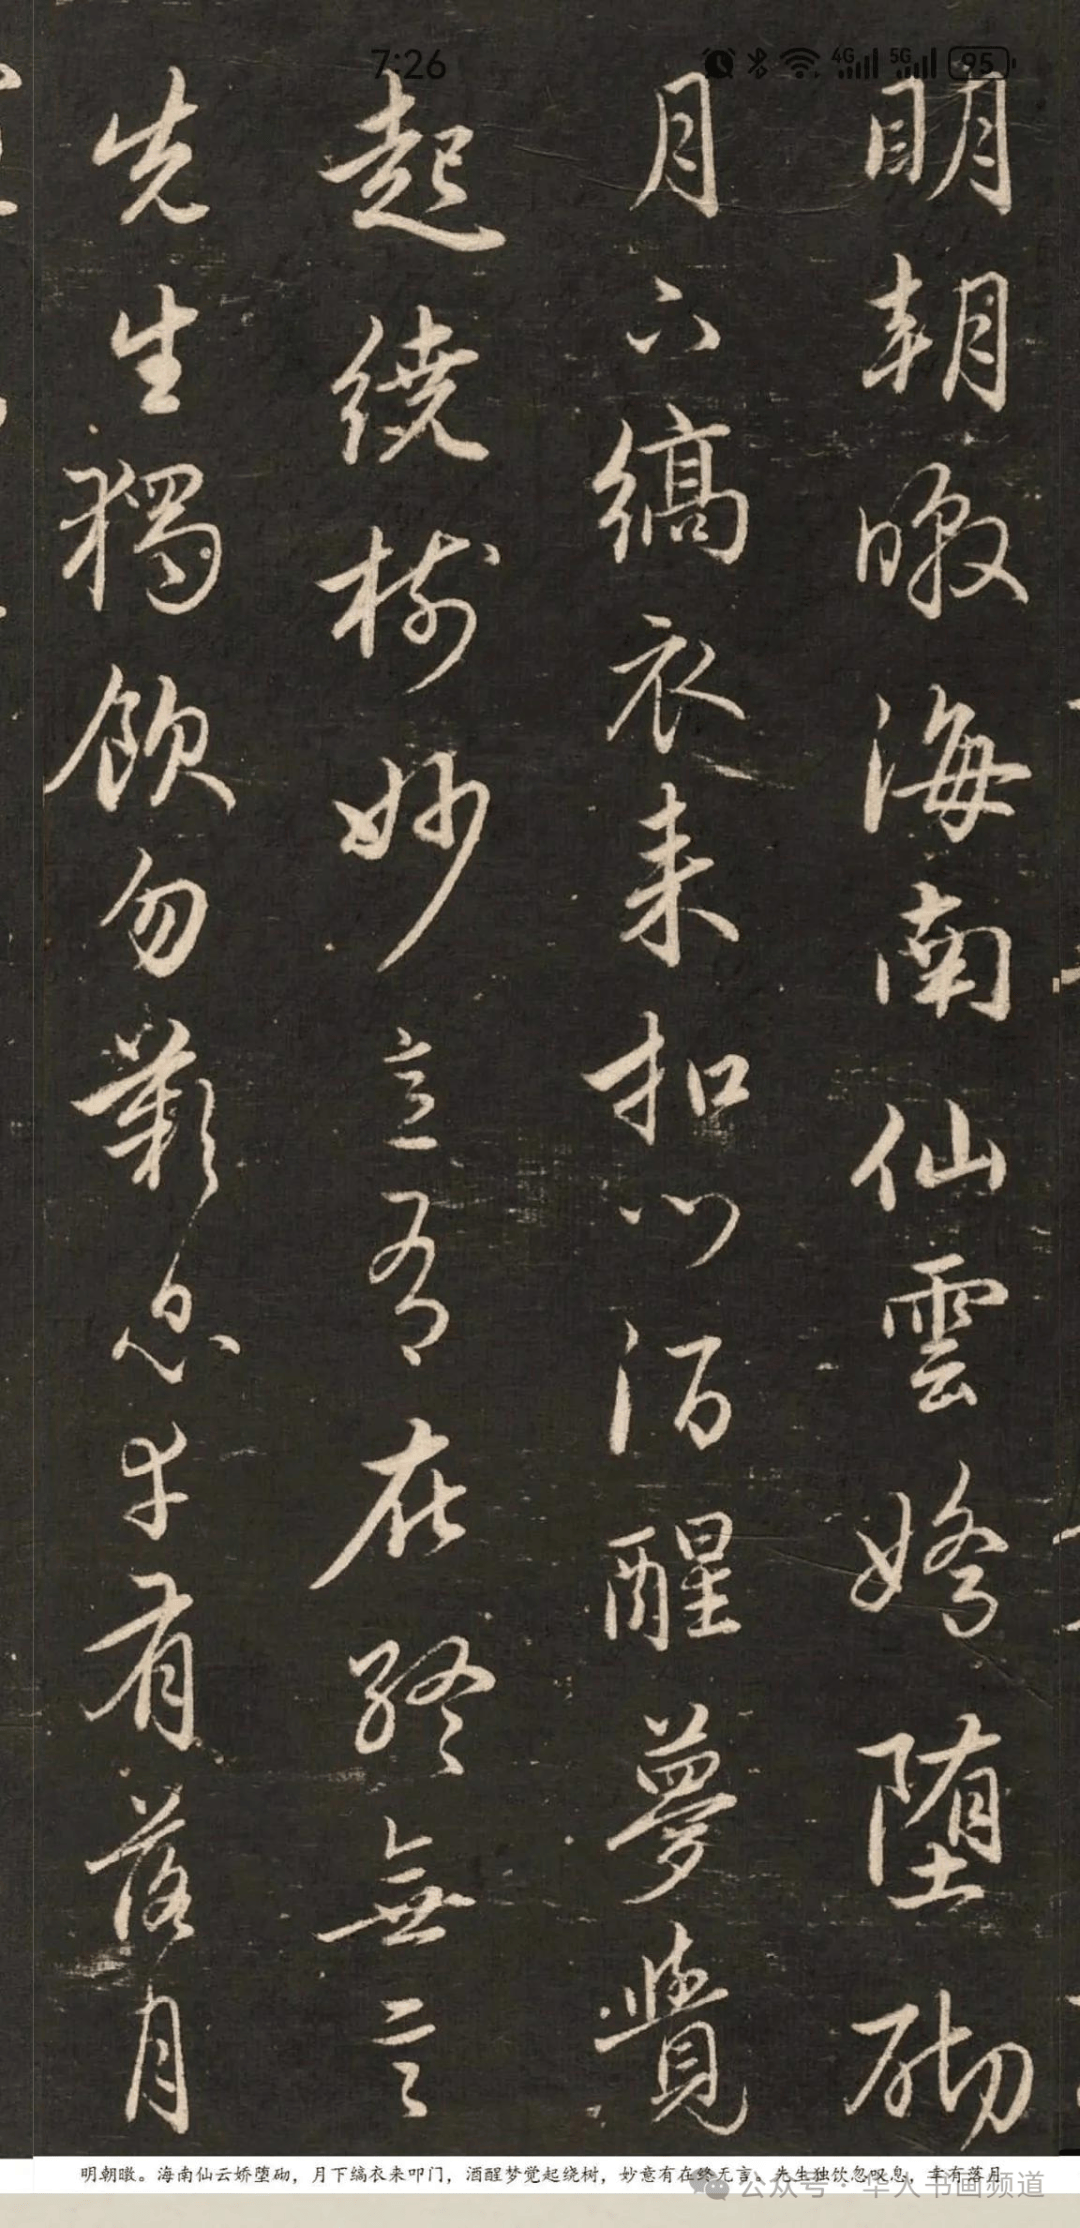 7:26 4G 5G 95
明朝暾海南仙雲嬌堕砌
月下縞衣来扣門酒醒夢覺
起繞樹妙意有在終無言
先生獨飲勿歎息幸有落月
明朝暾。海南仙云娇堕砌，月下缟衣来叩门，酒醒梦觉起绕树，妙意有在终无言。先生独饮忽叹息，幸有落月
公众号 · 华人书画频道